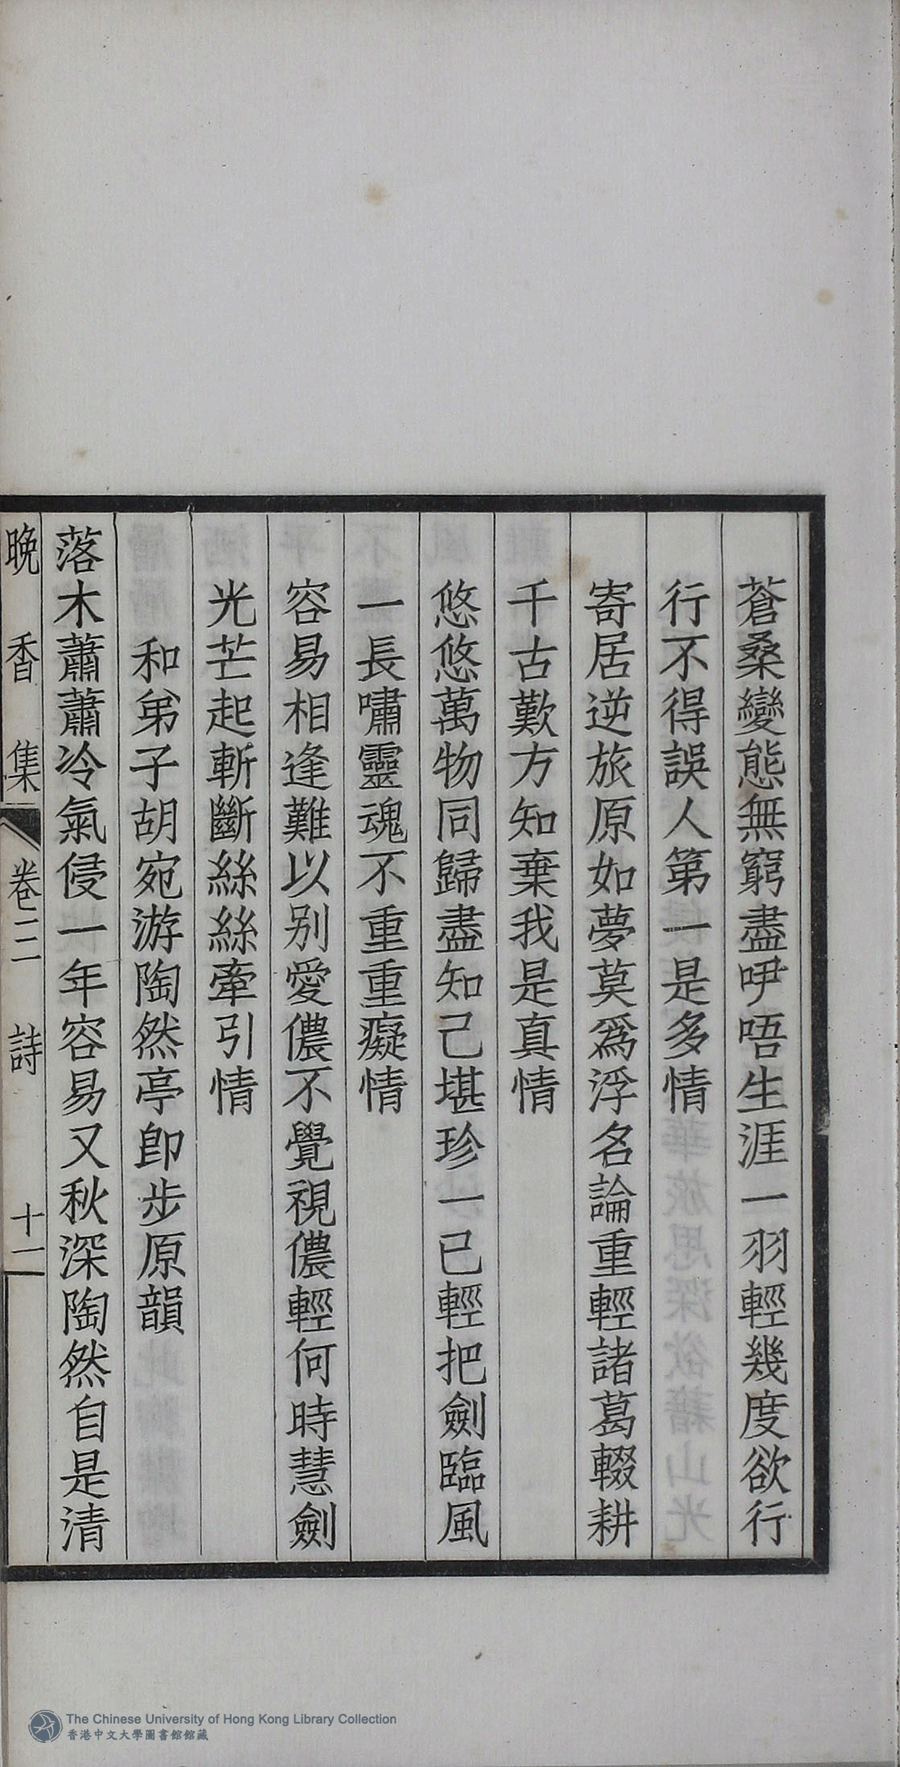 蒼桑變態無窮盡咿唔生涯一羽輕幾度欲行
行不得誤人第一是多情
寄居逆旅原如夢莫爲浮名論重輕諸葛輟耕
千古歎方知棄我是真情
悠悠萬物同歸盡知己堪珍一已輕把劍臨風
一長嘯靈魂不重重癡情
容易相逢難以别愛儂不覺視儂輕何時慧劍
光芒起斬斷絲絲牽引情
和弟子胡宛游陶然亭即步原韻
落木蕭蕭冷氣侵一年容易又秋深陶然自是清
晚香集 卷二 詩 十一
The Chinese University of Hong Kong Library Collection
香港中文大學圖書館館藏